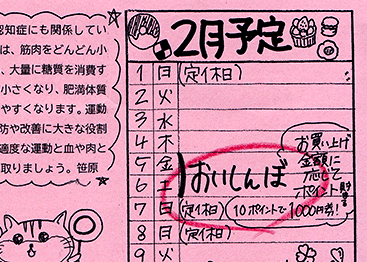 認知症にも関係してい
は、筋肉をどんどん小
、大量に糖質を消費す
小さくなり、肥満体質
やすくなります。運動
防や改善に大きな役割
適度な運動と血や肉と
取りましょう。笹原
2月予定
1 日 (定休日)
2 火
3 水
4 木
5 金
6 土
おいしんぼ
7 日 (定休日) 10ポイントで1000円券!
お買い上げ
金額に
応じて
ポイント
8 日 (定休日)
9 火